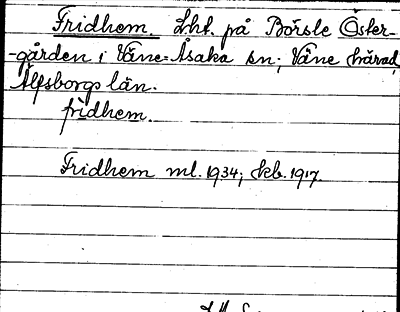 Fridhem. Lht. på Börsle Öster-
-gården i Väne-Åsaka sn; Väne härad,
Älfsborgs län.
frìdhem.
Fridhem ml. 1934; kb. 1917.